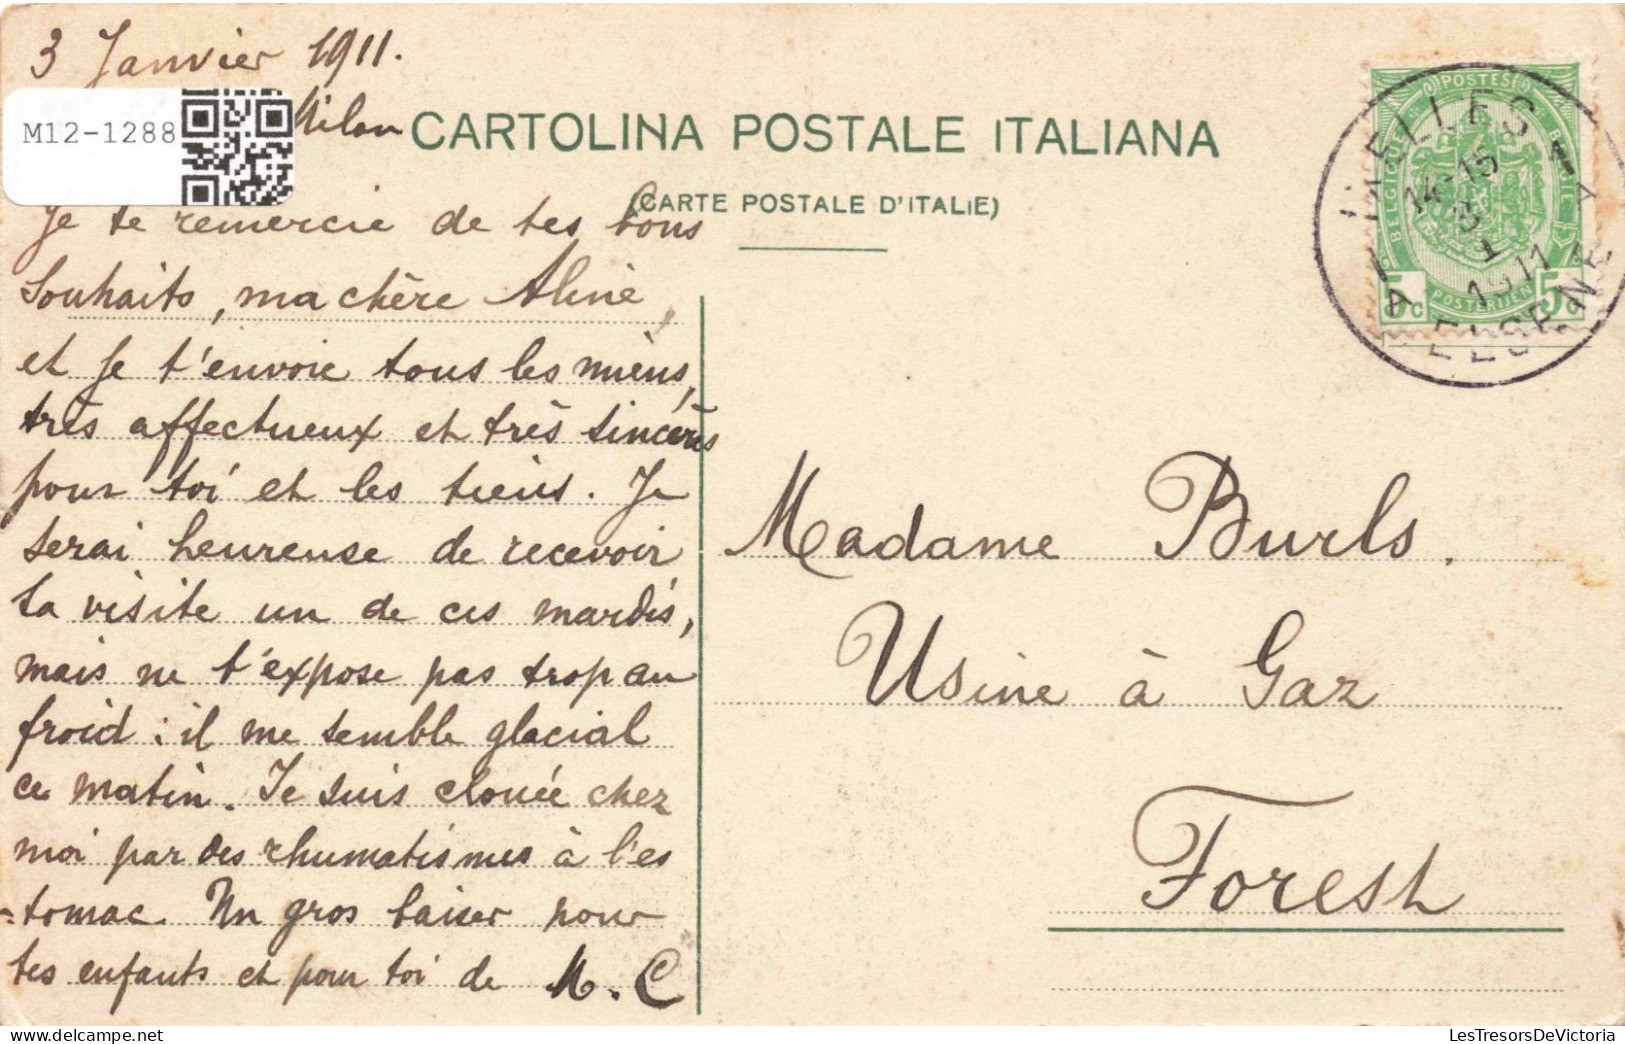 3 Janvier 1911.
M12-1288
Milan
CARTOLINA POSTALE ITALIANA
(CARTE POSTALE D'ITALIE)
Je te remercie de tes bons
souhaits, ma chère Aline,
et je t'envoie tous les miens,
très affectueux et très sincères
pour toi et les tiens. Je
serai heureuse de recevoir
ta visite un de ces mardis,
mais ne t'expose pas trop au
froid : il me semble glacial
ce matin. Je suis clouée chez
moi par des rhumatismes à l'es
-tomac. Un gros baiser pour
tes enfants et pour toi de M. C
POSTES
BELGIQUE
BELGIE
POSTERIJEN
5c
5c
IXELLES
14-15
3
1
1911
ELSENE
A
Madame Burls.
Usine à Gaz
Forest
LesTresorsDeVictoria